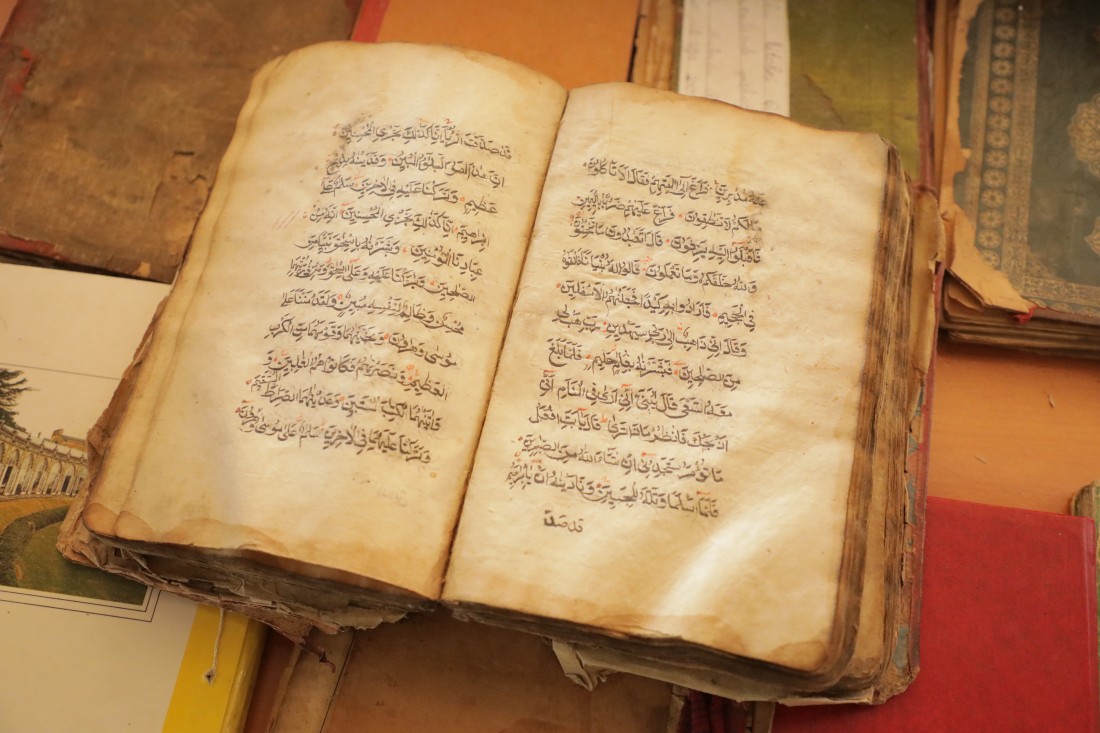 عنه مدبرين فراغ الى الهتهم فقال الا تاكلون
ما لكم لا تنطقون فراغ عليهم ضربا باليمين
فاقبلوا اليه يزفون قال اتعبدون ما تنحتون
والله خلقكم وما تعملون قالوا ابنوا له بنيانا فالقوه
في الجحيم فارادوا به كيدا فجعلنهم الاسفلين
وقال اني ذاهب الى ربي سيهدين رب هب لي
من الصلحين فبشرنه بغلم حليم فلما بلغ
معه السعي قال يبني اني ارى في المنام اني
اذبحك فانظر ماذا ترى قال يابت افعل
ما تؤمر ستجدني ان شاء الله من الصبرين
فلما اسلما وتله للجبين ونادينه ان يابرهيم
قد صد
قد صدقت الرءيا انا كذلك نجزي المحسنين
ان هذا لهو البلؤا المبين وفدينه بذبح
عظيم وتركنا عليه في الاخرين سلم على
ابرهيم انا كذلك نجزي المحسنين انه من
عبادنا المؤمنين وبشرنه باسحق نبيا من
الصلحين وبركنا عليه وعلى اسحق ومن ذريتهما
محسن وظالم لنفسه مبين ولقد مننا على
موسى وهرون ونجينهما وقومهما من الكرب
العظيم ونصرنهم فكانوا هم الغلبين و
اتينهما الكتب المستبين وهدينهما الصراط المستقيم
وتركنا عليهما في الاخرين سلم على موسى وهرون